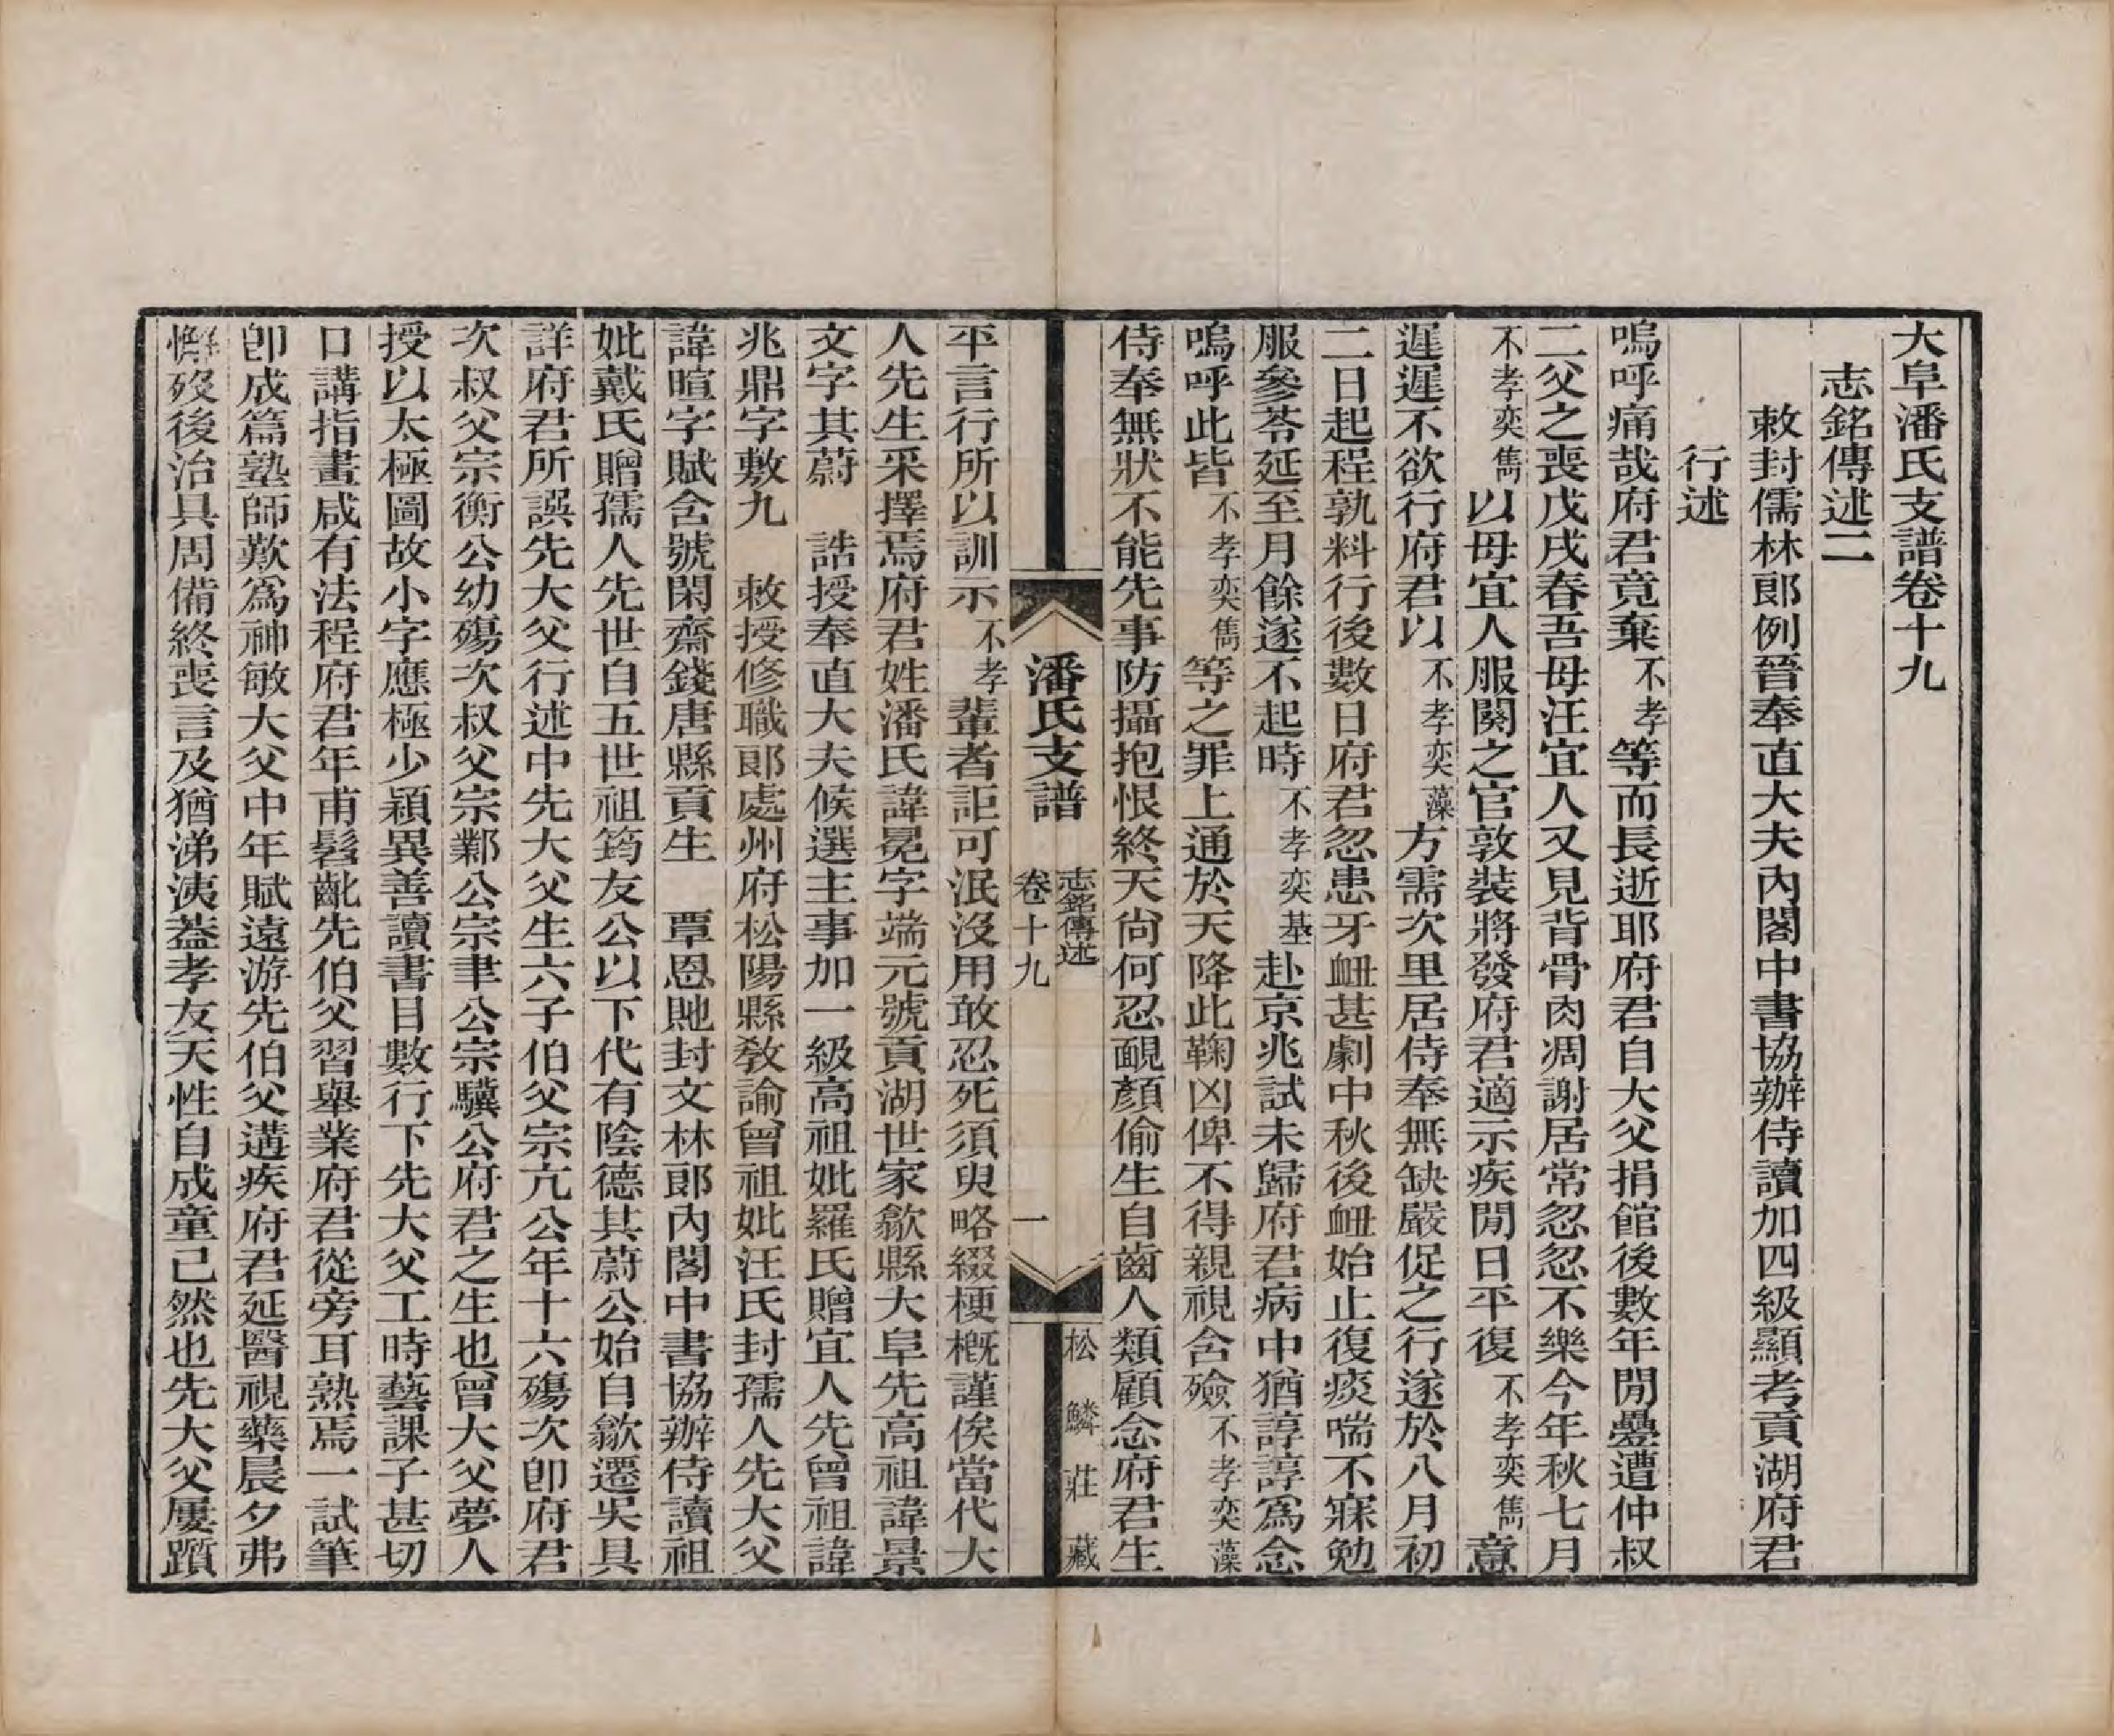 大阜潘氏支譜卷十九
志銘傳述二
敕封儒林郎例晉奉直大夫內閣中書協辦侍讀加四級顯考貢湖府君
行述
嗚呼痛哉府君竟棄不孝等而長逝耶府君自大父捐館後數年閒疊遭仲叔
二父之喪戊戌春吾母汪宜人又見背骨肉凋謝居常忽忽不樂今年秋七月
不孝奕雋以母宜人服闋之官敦裝將發府君適示疾閒日平復不孝奕雋意
遲遲不欲行府君以不孝奕藻方需次里居侍奉無缺嚴促之行遂於八月初
二日起程孰料行後數日府君忽患牙衄甚劇中秋後衄始止復痰喘不寐勉
服參苓延至月餘遂不起時不孝奕基赴京兆試未歸府君病中猶諄諄爲念
嗚呼此皆不孝奕雋等之罪上通於天降此鞠凶俾不得親視含殮不孝奕藻
侍奉無狀不能先事防攝抱恨終天尙何忍靦顏偷生自齒人類顧念府君生
潘氏支譜
志銘傳述
卷十九
一
松鱗莊藏
平言行所以訓示不孝輩者詎可泯沒用敢忍死須臾略綴梗概謹俟當代大
人先生采擇焉府君姓潘氏諱冕字端元號貢湖世家歙縣大阜先高祖諱景
文字其蔚　誥授奉直大夫候選主事加一級高祖妣羅氏贈宜人先曾祖諱
兆鼎字敷九　敕授修職郎處州府松陽縣敎諭曾祖妣汪氏封孺人先大父
諱暄字賦含號閑齋錢唐縣貢生　覃恩貤封文林郎內閣中書協辦侍讀祖
妣戴氏贈孺人先世自五世祖筠友公以下代有陰德其蔚公始自歙遷吳具
詳府君所譔先大父行述中先大父生六子伯父宗亢公年十六殤次卽府君
次叔父宗衡公幼殤次叔父宗鄴公宗聿公宗驥公府君之生也曾大父夢人
授以太極圖故小字應極少穎異善讀書目數行下先大父工時藝課子甚切
口講指畫咸有法程府君年甫髫齔先伯父習舉業府君從旁耳熟焉一試筆
卽成篇塾師歎爲神敏大父中年賦遠游先伯父遘疾府君延醫視藥晨夕弗
懈歿後治具周備終喪言及猶涕洟葢孝友天性自成童已然也先大父屢躓